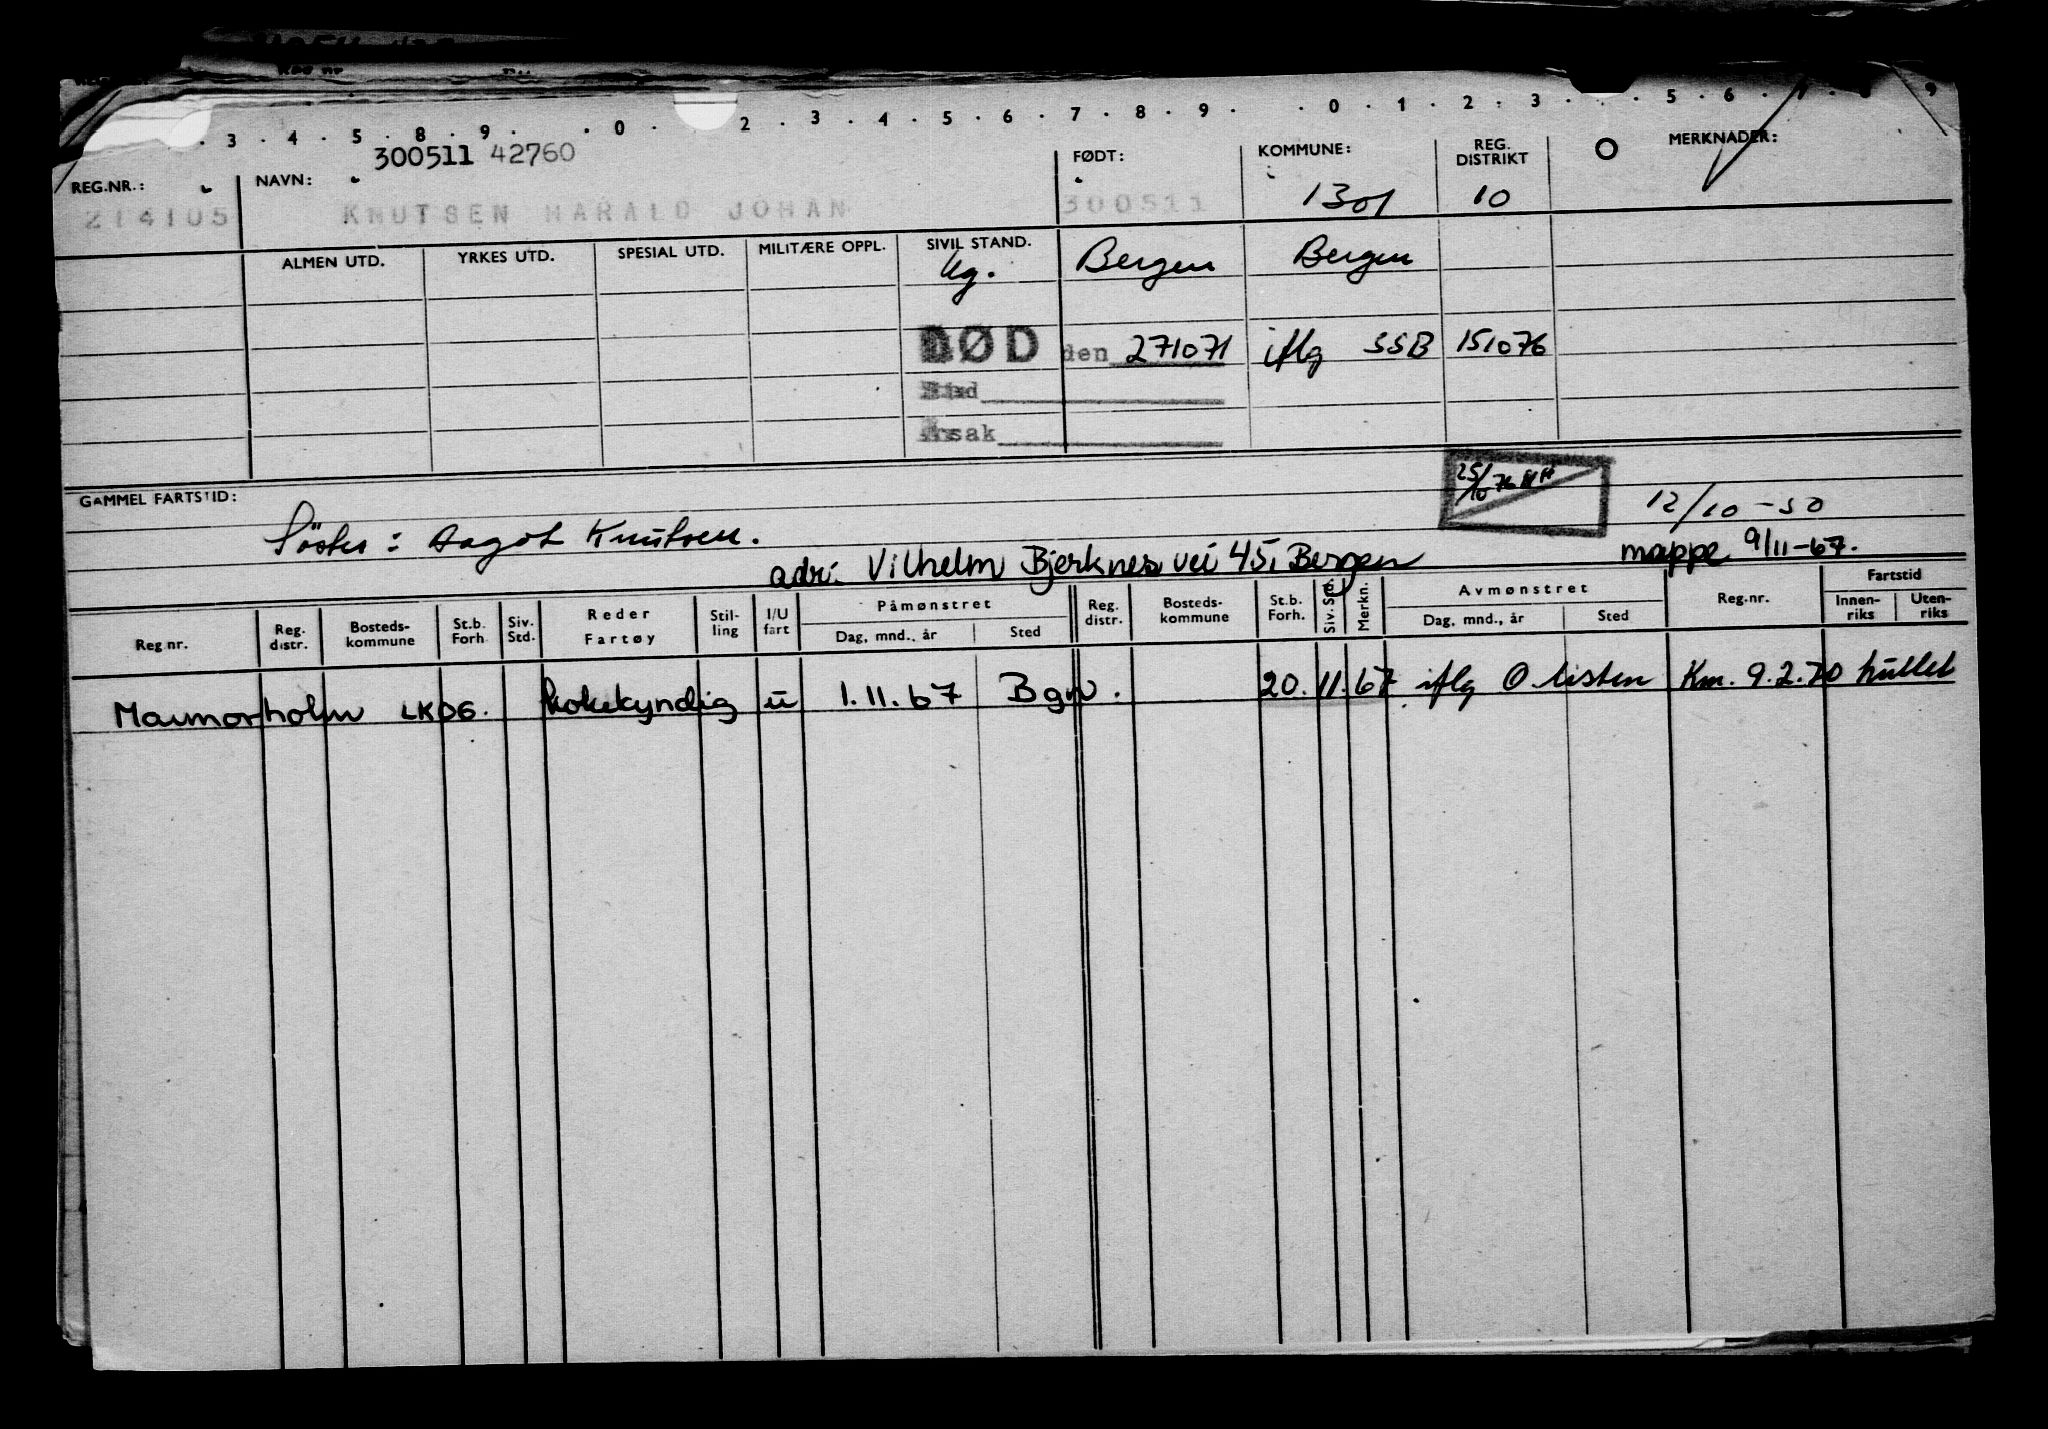 3 . 4 . 5 . 8 . 9 . . 0 . 2 . 3 . 4 . 5 . 6 . 7 . 8 . 9 . . 0 . 1 . 2 . 3 . . 5 . 6 . 7 . 8 . 9
300511 42760
REG.NR.: NAVN: FØDT: KOMMUNE: REG. DISTRIKT MERKNADER:
214105 KNUTSEN HARALD JOHAN 300511 1301 10
ALMEN UTD. YRKES UTD. SPESIAL UTD. MILITÆRE OPPL. SIVIL STAND.
Ug. Bergen Bergen
DØD den 271071 iflg SSB 151076
Sted
Årsak
25/10 76
GAMMEL FARTSTID:
12/10-50
Søster: Dagot Knutsen.
mappe 9/11-67.
adr: Vilhelm Bjerknes vei 45, Bergen
Reg.nr. Reg. distr. Bosteds-kommune St.b. Forh. Siv. Std. Reder Fartøy Stil-ling I/U fart Påmønstret Dag, mnd., år Sted Reg. distr. Bosteds-kommune St.b. Forh. Siv. St. Merkn. Avmønstret Dag, mnd., år Sted Reg.nr. Fartstid Innen-riks Uten-riks
Marmorholm LKDG. kokekyndig u 1.11.67 Bgn. 20.11.67 iflg O listen Km. 9.2.70 hullet